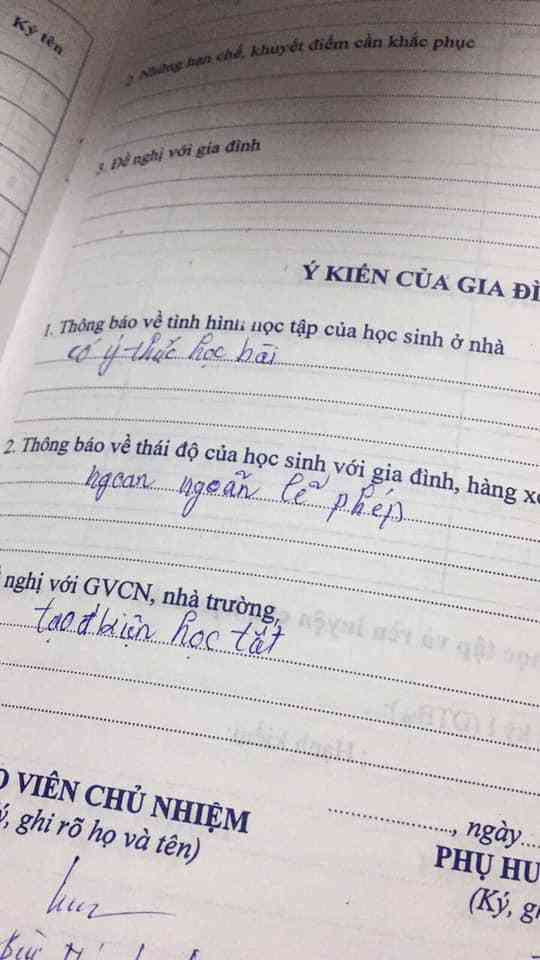 Ký tên
2. Những hạn chế, khuyết điểm cần khắc phục
3. Đề nghị với gia đình
Ý KIẾN CỦA GIA ĐÌ
1. Thông báo về tình hình học tập của học sinh ở nhà
có ý thức học bài
2. Thông báo về thái độ của học sinh với gia đình, hàng xó
ngoan ngoãn lễ phép
nghị với GVCN, nhà trường,
tạo đ kiện học tốt
O VIÊN CHỦ NHIỆM
ý, ghi rõ họ và tên)
, ngày
PHỤ HU
(Ký, gh